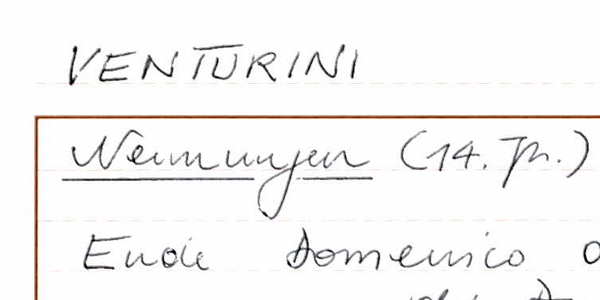 VENTURINI
Nennungen (14. Jh.)
Ende Domenico